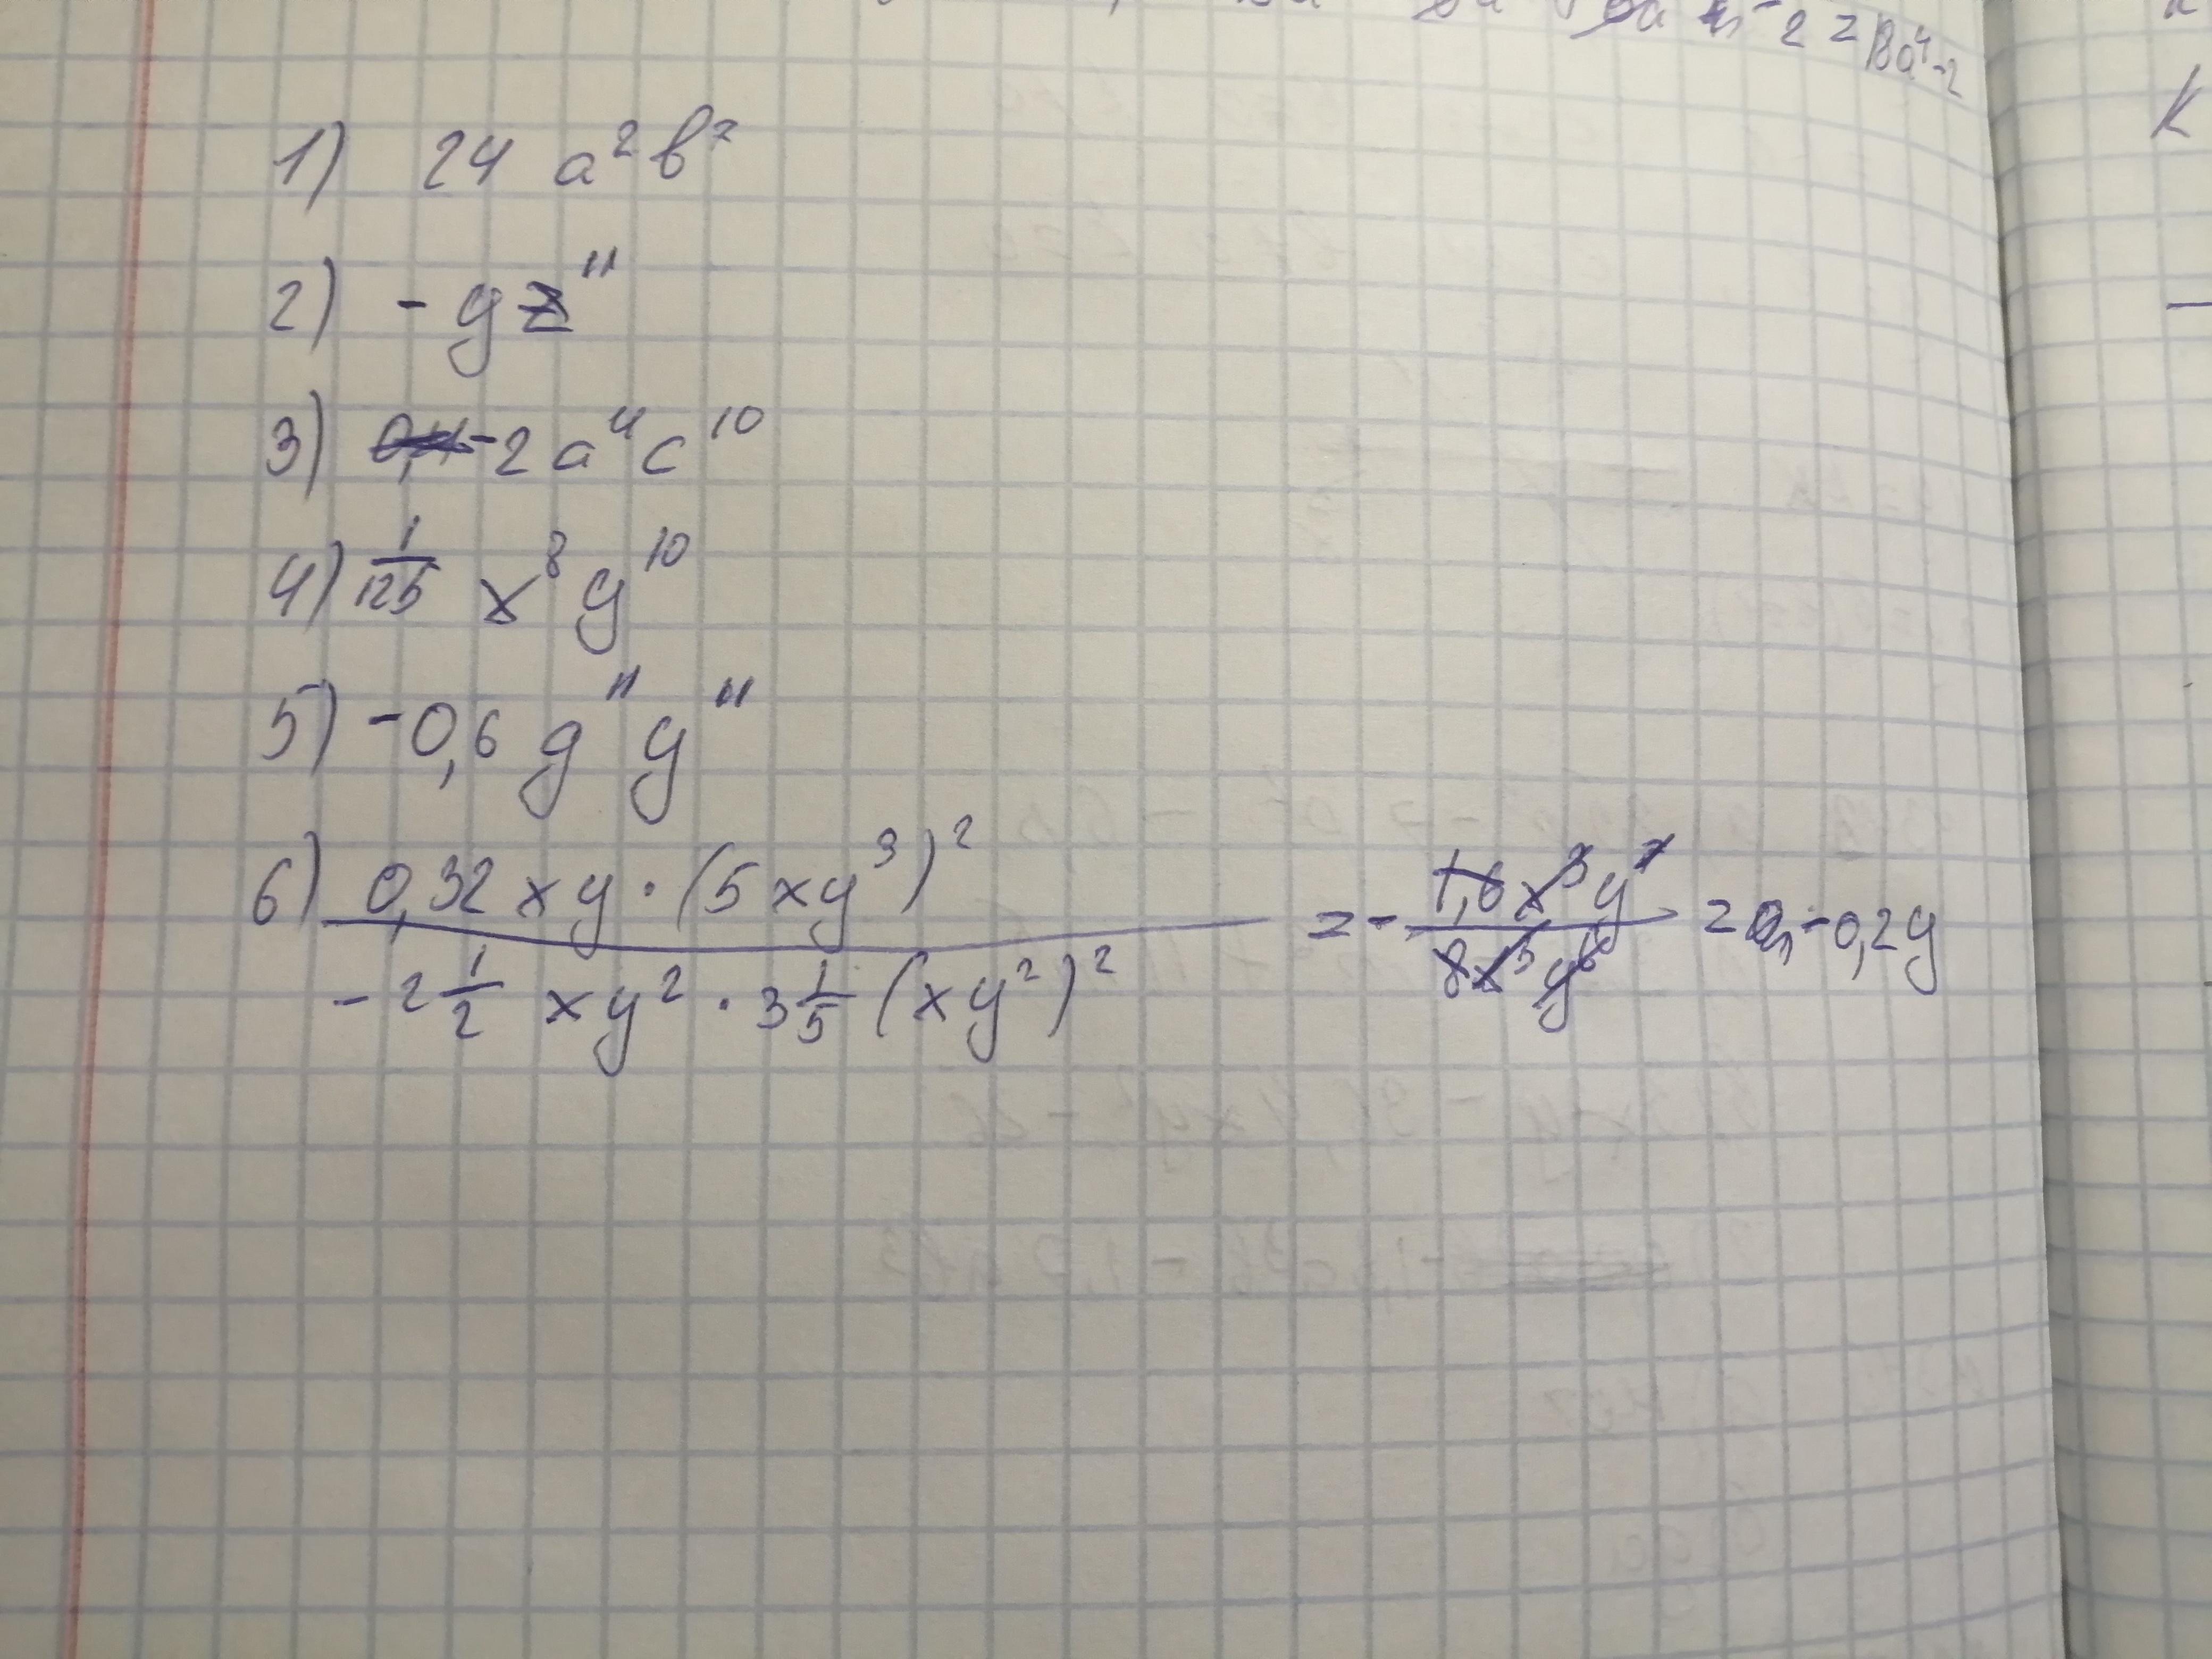 2 = 18a⁴-2
1) 24 a²b⁷
2) - yz¹¹
3) -2a⁴c¹⁰
4) 1/125 x⁸y¹⁰
5) -0,6 g¹¹y¹¹
6) 0,32xy·(5xy³)² / -2 1/2 xy²·3 1/5 (xy²)² = - 1,6x³y⁷ / 8x³y⁶ = -0,2y
k